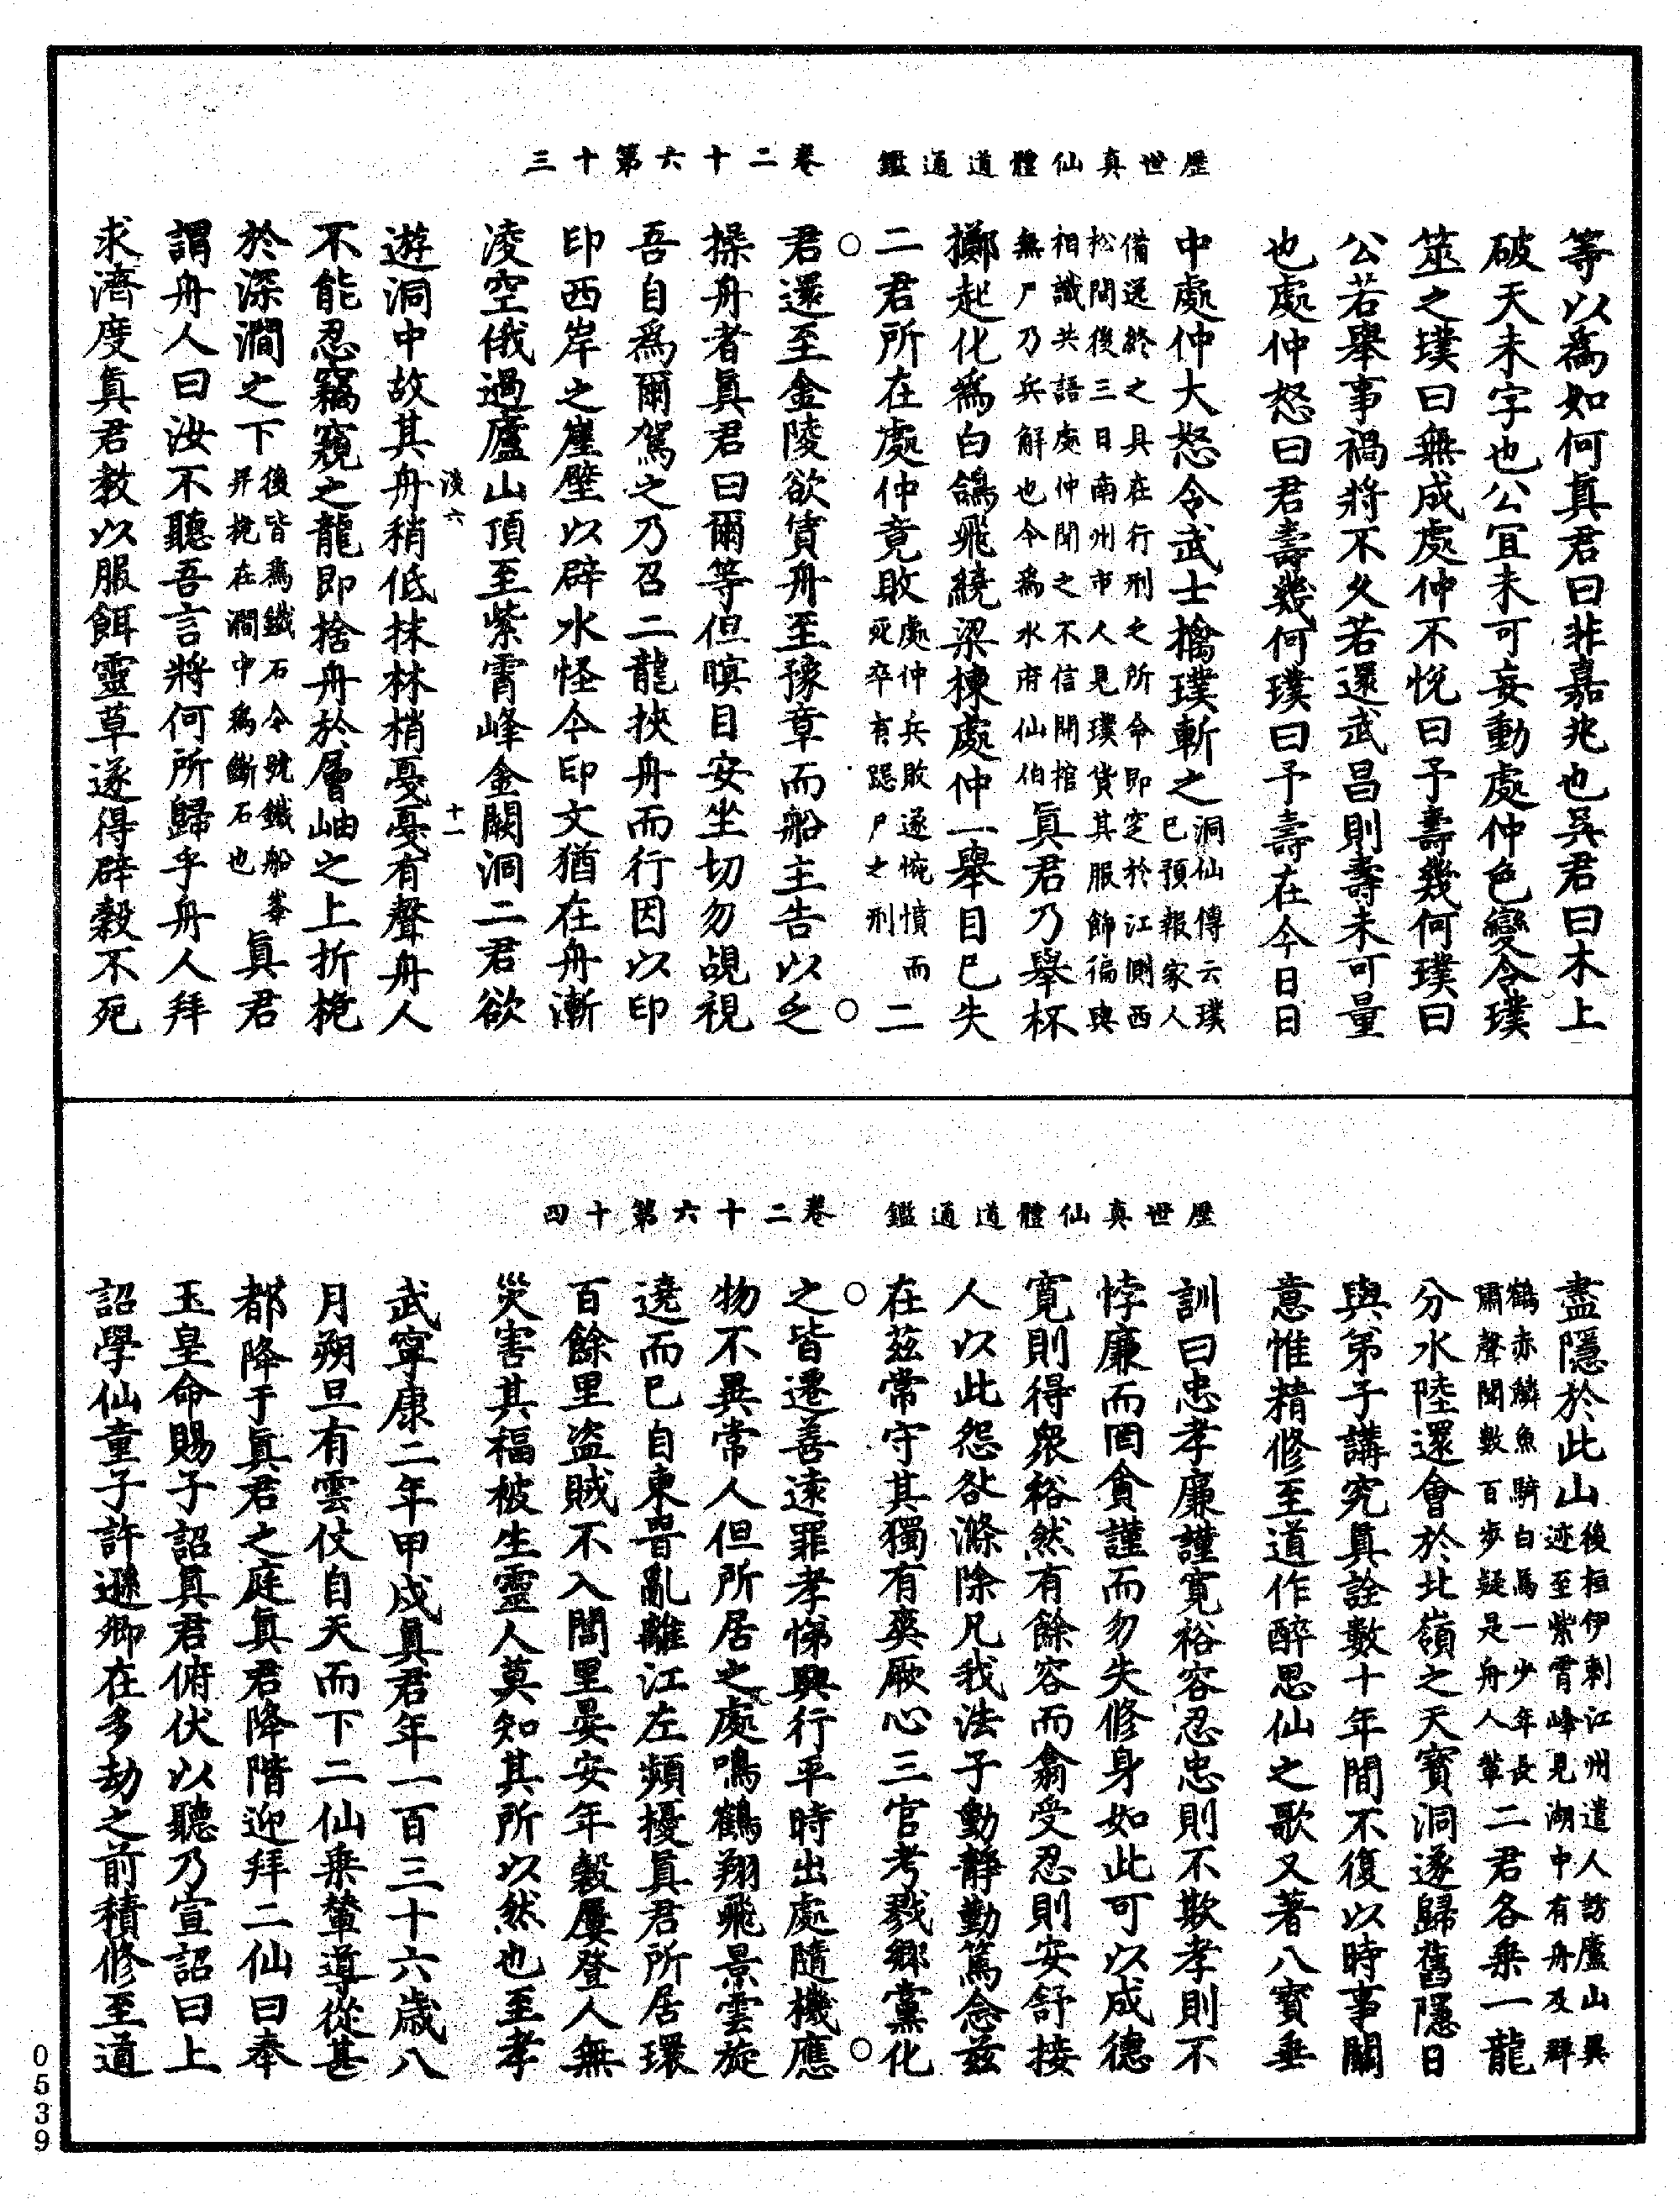 歷世真仙體道通鑑　卷二十六第十三
等以爲如何眞君曰非嘉兆也吳君曰木上
破天未字也公宜未可妄動處仲色變令璞
筮之璞曰無成處仲不悅曰予壽幾何璞曰
公若舉事禍將不久若還武昌則壽未可量
也處仲怒曰君壽幾何璞曰予壽在今日日
中處仲大怒令武士擒璞斬之洞仙傳云璞已預報家人
備送終之具在行刑之所命即窆於江側西松間後三日南州市人見璞貨其服飾徧與
相識共語處仲聞之不信開棺無尸乃兵解也今爲水府仙伯眞君乃舉杯
擲起化爲白鴿飛繞梁棟處仲一舉目已失
二君所在處仲竟敗處仲兵敗遂惋憤而死卒有跽尸之刑○二
君還至金陵欲賃舟至豫章而船主告以乏
操舟者眞君曰爾等但瞑目安坐切勿覘視
吾自爲爾駕之乃召二龍挾舟而行因以印
印西岸之崖壁以辟水怪今印文猶在舟漸
淩空俄過廬山頂至紫霄峰金闕洞二君欲
淡六　十一
遊洞中故其舟稍低抹林梢戛戛有聲舟人
不能忍竊窺之龍即捨舟於層岫之上折桅
於深澗之下後皆爲鐵石今號鐵船峯桅在澗中爲斷石也眞君
謂舟人曰汝不聽吾言將何所歸乎舟人拜
求濟度眞君教以服餌靈草遂得辟穀不死
歷世真仙體道通鑑　卷二十六第十四
盡隱於此山後桓伊刺江州遣人訪廬山異迹至紫霄峰見湖中有舟及群
鶴赤鱗魚騎白馬一少年長嘯聲聞數百步疑是舟人輩二君各乘一龍
分水陸還會於北嶺之天寶洞遂歸舊隱日
與弟子講究眞詮數十年間不復以時事關
意惟精修至道作醉思仙之歌又著八寶垂
訓曰忠孝廉謹寬裕容忍忠則不欺孝則不
悖廉而罔貪謹而勿失修身如此可以成德
寬則得衆裕然有餘容而翕受忍則安舒接
人以此怨咎滌除凡我法子動靜勤篤念兹
在兹常守其獨有爽厥心三官考戮鄉黨化
之皆遷善遠罪孝悌興行平時出處隨機應
物不異常人但所居之處鳴鶴翔飛景雲旋
遶而已自東晉亂離江左頻擾眞君所居環
百餘里盜賊不入閭里晏安年穀屢登人無
災害其福被生靈人莫知其所以然也至孝
武寧康二年甲戌眞君年一百三十六歲八
月朔旦有雲仗自天而下二仙乘輦導從甚
都降于眞君之庭眞君降階迎拜二仙曰奉
玉皇命賜子詔眞君俯伏以聽乃宣詔曰上
詔學仙童子許遜卿在多劫之前積修至道
0539